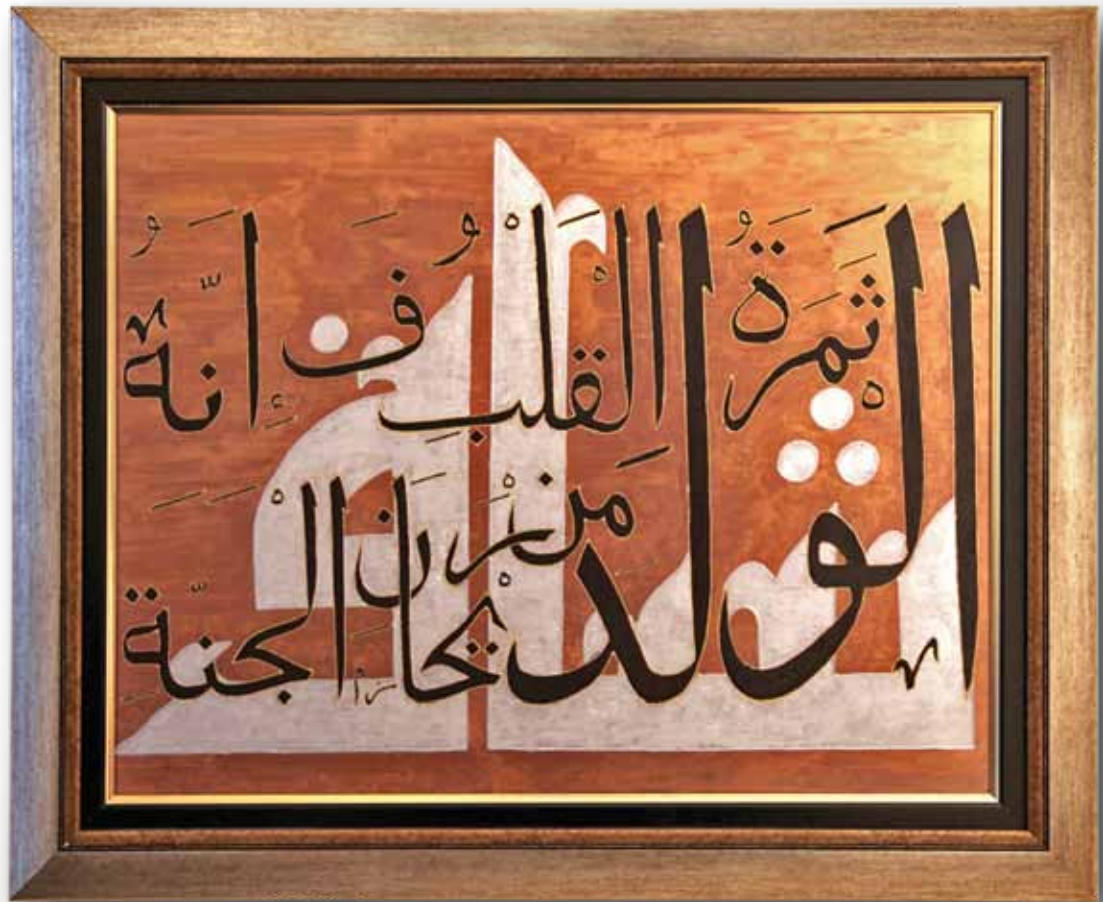 الولد ثَمَرَةُ الْقَلْبِ فَإِنَّهُ
مِن رَيْحَانِ الْجَنَّةِ